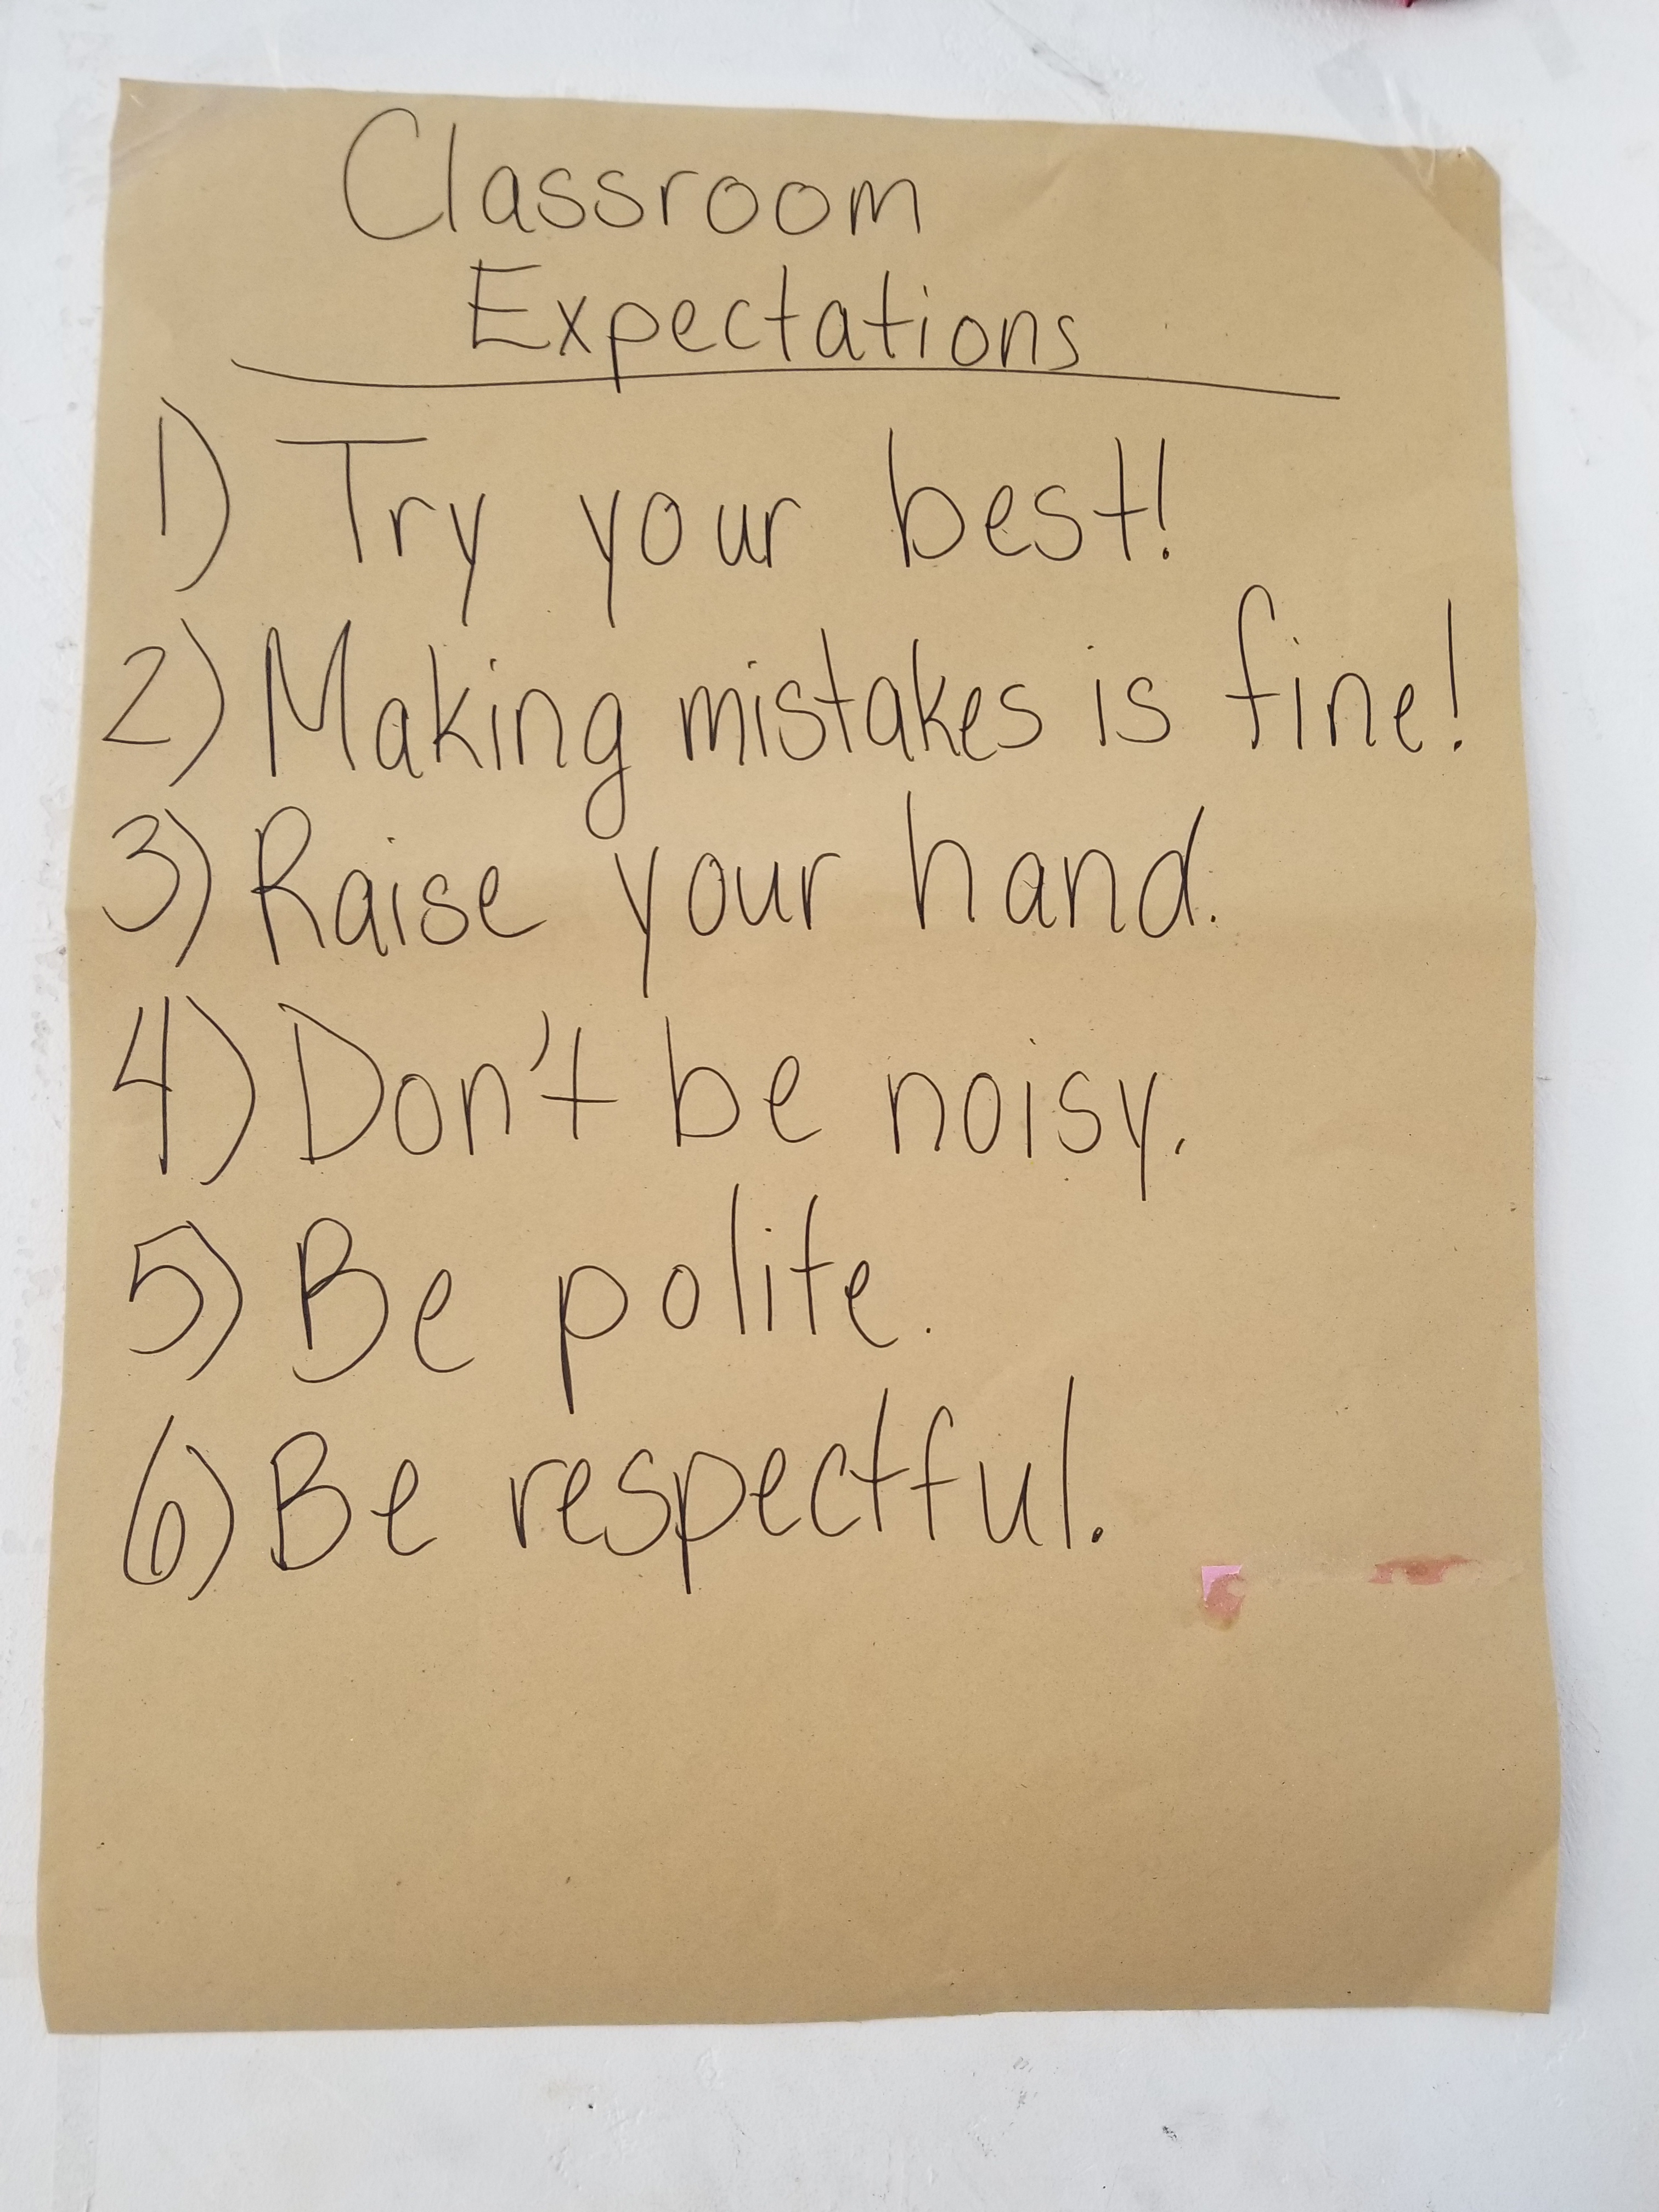 Classroom
Expectations
1) Try your best!
2) Making mistakes is fine!
3) Raise your hand.
4) Don't be noisy.
5) Be polite.
6) Be respectful.